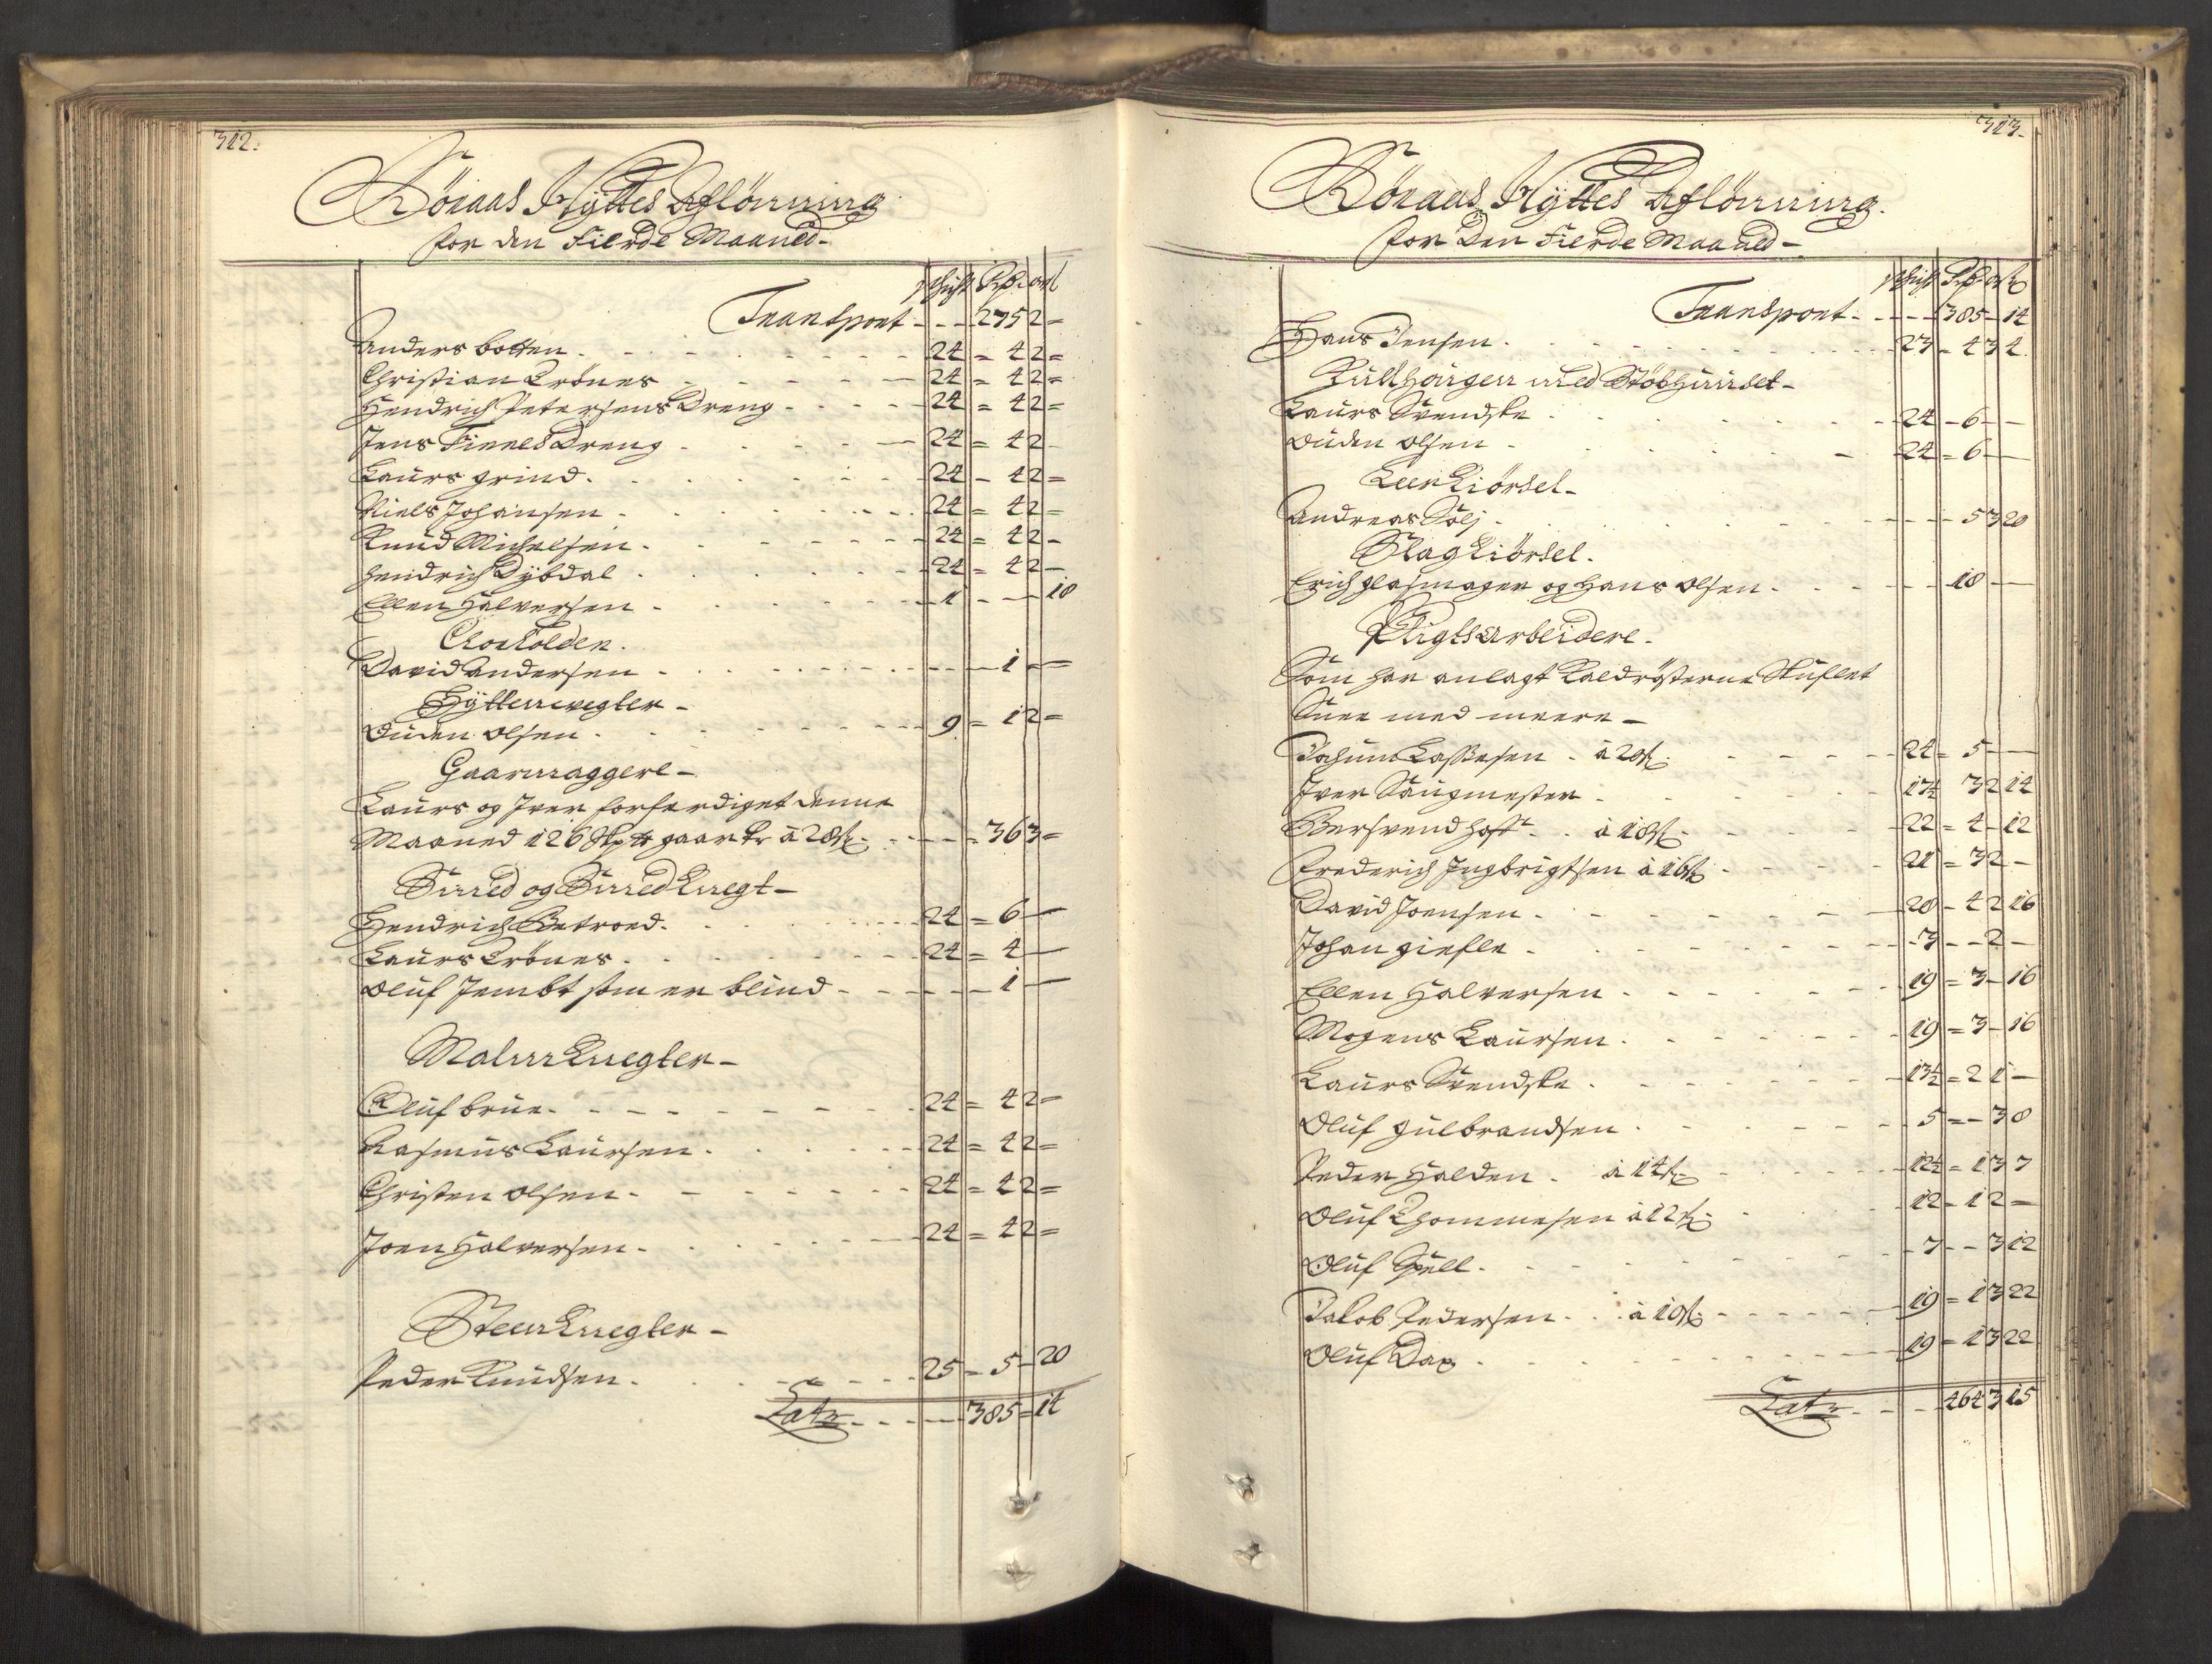 312.
Röraas Hyttes Aflönning
for den Fierde Maaned-
schicht Rdr ort s
Transport - - - 275 2 =
Anders botten. 24 = 4 2 =
Christian Trönes 24 = 4 2 =
Hendrich Petersens Dreng 24 = 4 2 =
Jens Finnes Dreng 24 = 4 2 -
Laurs grind. 24 - 4 2 =
Niels Johansen 24 = 4 2 =
Knud Michelsen 24 = 4 2 -
Hendrich Dybdal 24 = 4 2 -
Ellen Halversen - 1 - - - 18
David Andersen - - - 1 - =
Hyttewegter -
Auden Olsen 9 = 1 2 =
Gaarmaggere -
Laurs og Iver forferdiget denne
Maaned 126 gaar à 28 s - - - 36 3 =
Smed og Smed Knegt -
Hendrich 24 = 6 -
Laurs Trönes 24 = 4 -
Oluf Jembt som er blind - - - - 1 -
Malm Knegter -
Oluf brue. 24 = 4 2 =
Rasmus Laursen. 24 = 4 2 =
Christen Olsen - 24 = 4 2 =
Joen Halversen - 24 = 4 2 =
Steen Knegter -
Peder Knudsen. 25 - 5 - 20
Latr - - - 385 = 14
313.
Röraas Hyttes Aflönning.
for den Fierde Maaned -
schicht Rdr ort s
Transport - - - - 385 - 14
Hans Jensen. 23 - 4 3 4
med
Laurs Svendske 24 - 6 - -
Auden Olsen - 24 = 6 -
Leer Kiörsel -
Andreas - - - 5 3 20
Slag Kiörsel.
Erich glasmager og Hans Olsen. - - 18 -
Pligts Arbeidere.
Som har anlagt Kaldrösterne Skuflet
Snee med meere -
Jochum Lassesen. à 20 s. 24 = 5 -
Iver Saugmester 17½ 3 2 14
à 18 s 22 = 4 - 12
Frederich Ingbrigtsen à 16 s 21 = 3 2 -
David Joensen 20 - 4 2 16
Johan giefle - 3 - - 2 -
Ellen Halversen 19 = 3 - 16
Mogens Laursen 19 = 3 - 16
Laurs Svendske 13½ = 2 1 -
Oluf gulbrandsen 5 = - 3 8
Peder Halden à 14 s 12½ = 1 3 7
Oluf Thommesen à 12 s 12 - 1 2 =
Oluf - 7 - - 3 12
Jakob Pedersen à 10 s 19 = 1 3 22
Oluf Dax 19 = 1 3 22
Latr - - - 464 3 15